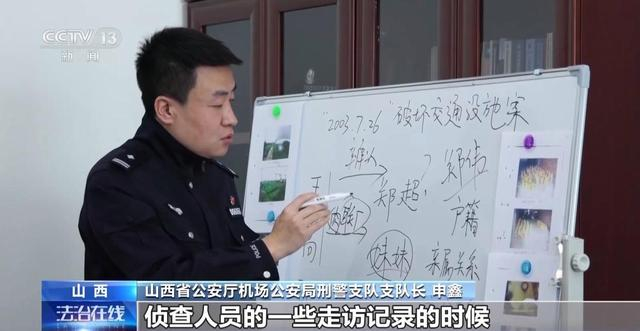 CCTV 13
新闻
"2003.7.26"破坏交通设施案
郑超
?
郑伟
户籍
妹妹
亲属关系
山西
山西省公安厅机场公安局刑警支队支队长 申鑫
法治在线
侦查人员的一些走访记录的时候